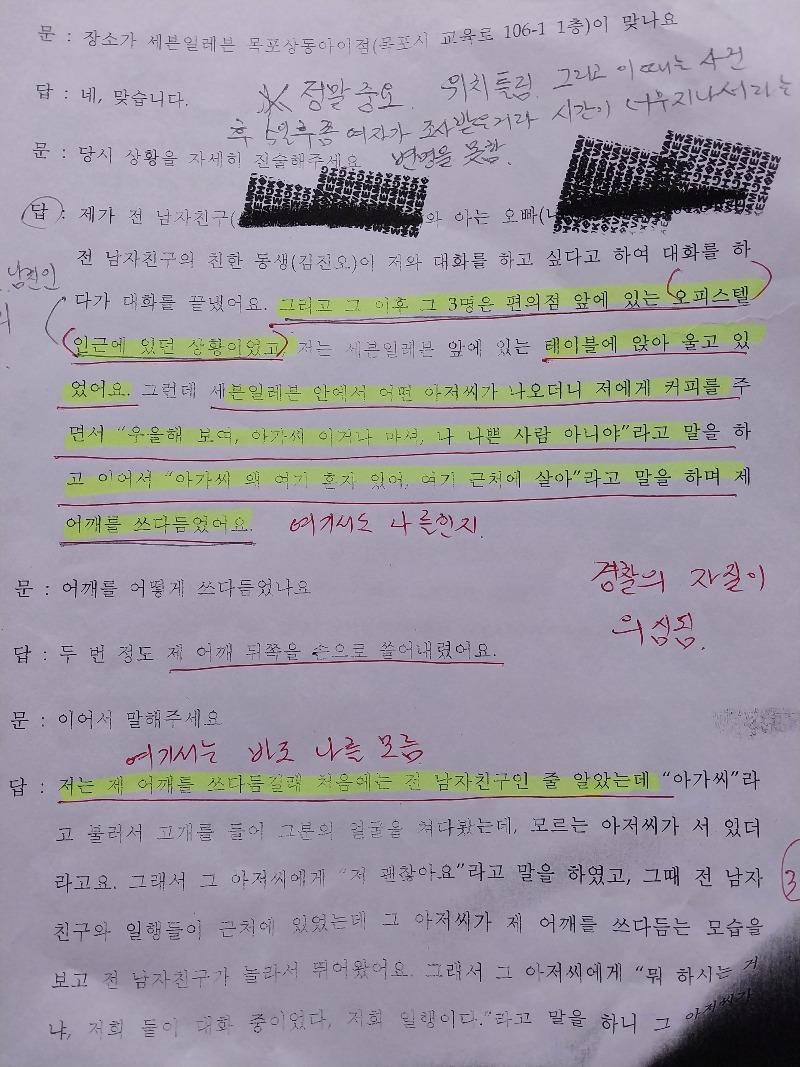 문 : 장소가 세븐일레븐 목포상동아이점(목포시 교육로 106-1 1층)이 맞나요
답 : 네, 맞습니다.
※ 정말 중요. 위치 틀림. 그리고 이때는 사건
후 5일후쯤 여자가 조사받은거라 시간이 너무지나서라는
문 : 당시 상황을 자세히 진술해주세요
변명을 못함.
답 : 제가 전 남자친구( 와 아는 오빠(
전 남자친구의 친한 동생(김진오)이 저와 대화를 하고 싶다고 하여 대화를 하
다가 대화를 끝냈어요. 그리고 그 이후 그 3명은 편의점 앞에 있는 오피스텔
인근에 있던 상황이었고 저는 세븐일레븐 앞에 있는 테이블에 앉아 울고 있
었어요. 그런데 세븐일레븐 안에서 어떤 아저씨가 나오더니 저에게 커피를 주
면서 “우울해 보여, 아가씨 이거나 마셔, 나 나쁜 사람 아니야”라고 말을 하
고 이어서 “아가씨 왜 여기 혼자 있어, 여기 근처에 살아”라고 말을 하며 제
어깨를 쓰다듬었어요.
여기서도 나를인지.
문 : 어깨를 어떻게 쓰다듬었나요
경찰의 자질이
의심됨.
답 : 두 번 정도 제 어깨 뒤쪽을 손으로 쓸어내렸어요.
문 : 이어서 말해주세요
여기서는 바로 나를 모름
답 : 저는 제 어깨를 쓰다듬길래 처음에는 전 남자친구인 줄 알았는데 “아가씨”라
고 불러서 고개를 들어 그분의 얼굴을 쳐다봤는데, 모르는 아저씨가 서 있더
라고요. 그래서 그 아저씨에게 “저 괜찮아요”라고 말을 하였고, 그때 전 남자
3
친구와 일행들이 근처에 있었는데 그 아저씨가 제 어깨를 쓰다듬는 모습을
보고 전 남자친구가 놀라서 뛰어왔어요. 그래서 그 아저씨에게 “뭐 하시는 거
냐, 저희 둘이 대화 중이었다, 저희 일행이다.”라고 말을 하니 그 아저씨가